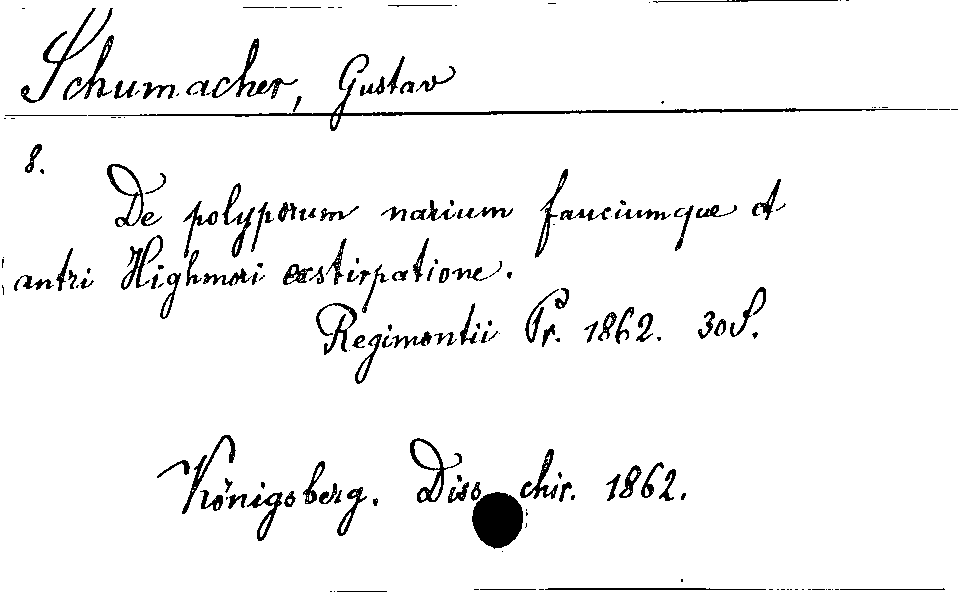 Schumacher, Gustav
8.
De polyporum narium fauciumque et
antri Highmori exstirpatione.
Regimontii Pr. 1862. 30 S.
Königsberg. Diss. chir. 1862.